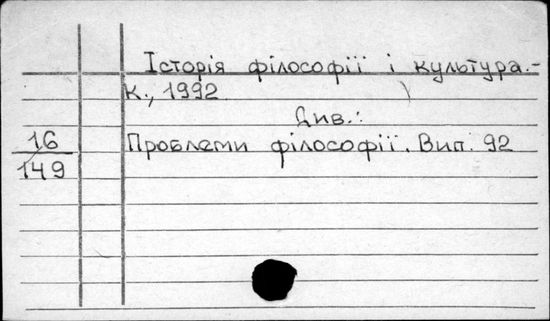 Історія філософії і культура.-
К., 1992
Див.:
16
Проблеми філософії. Вип. 92
149